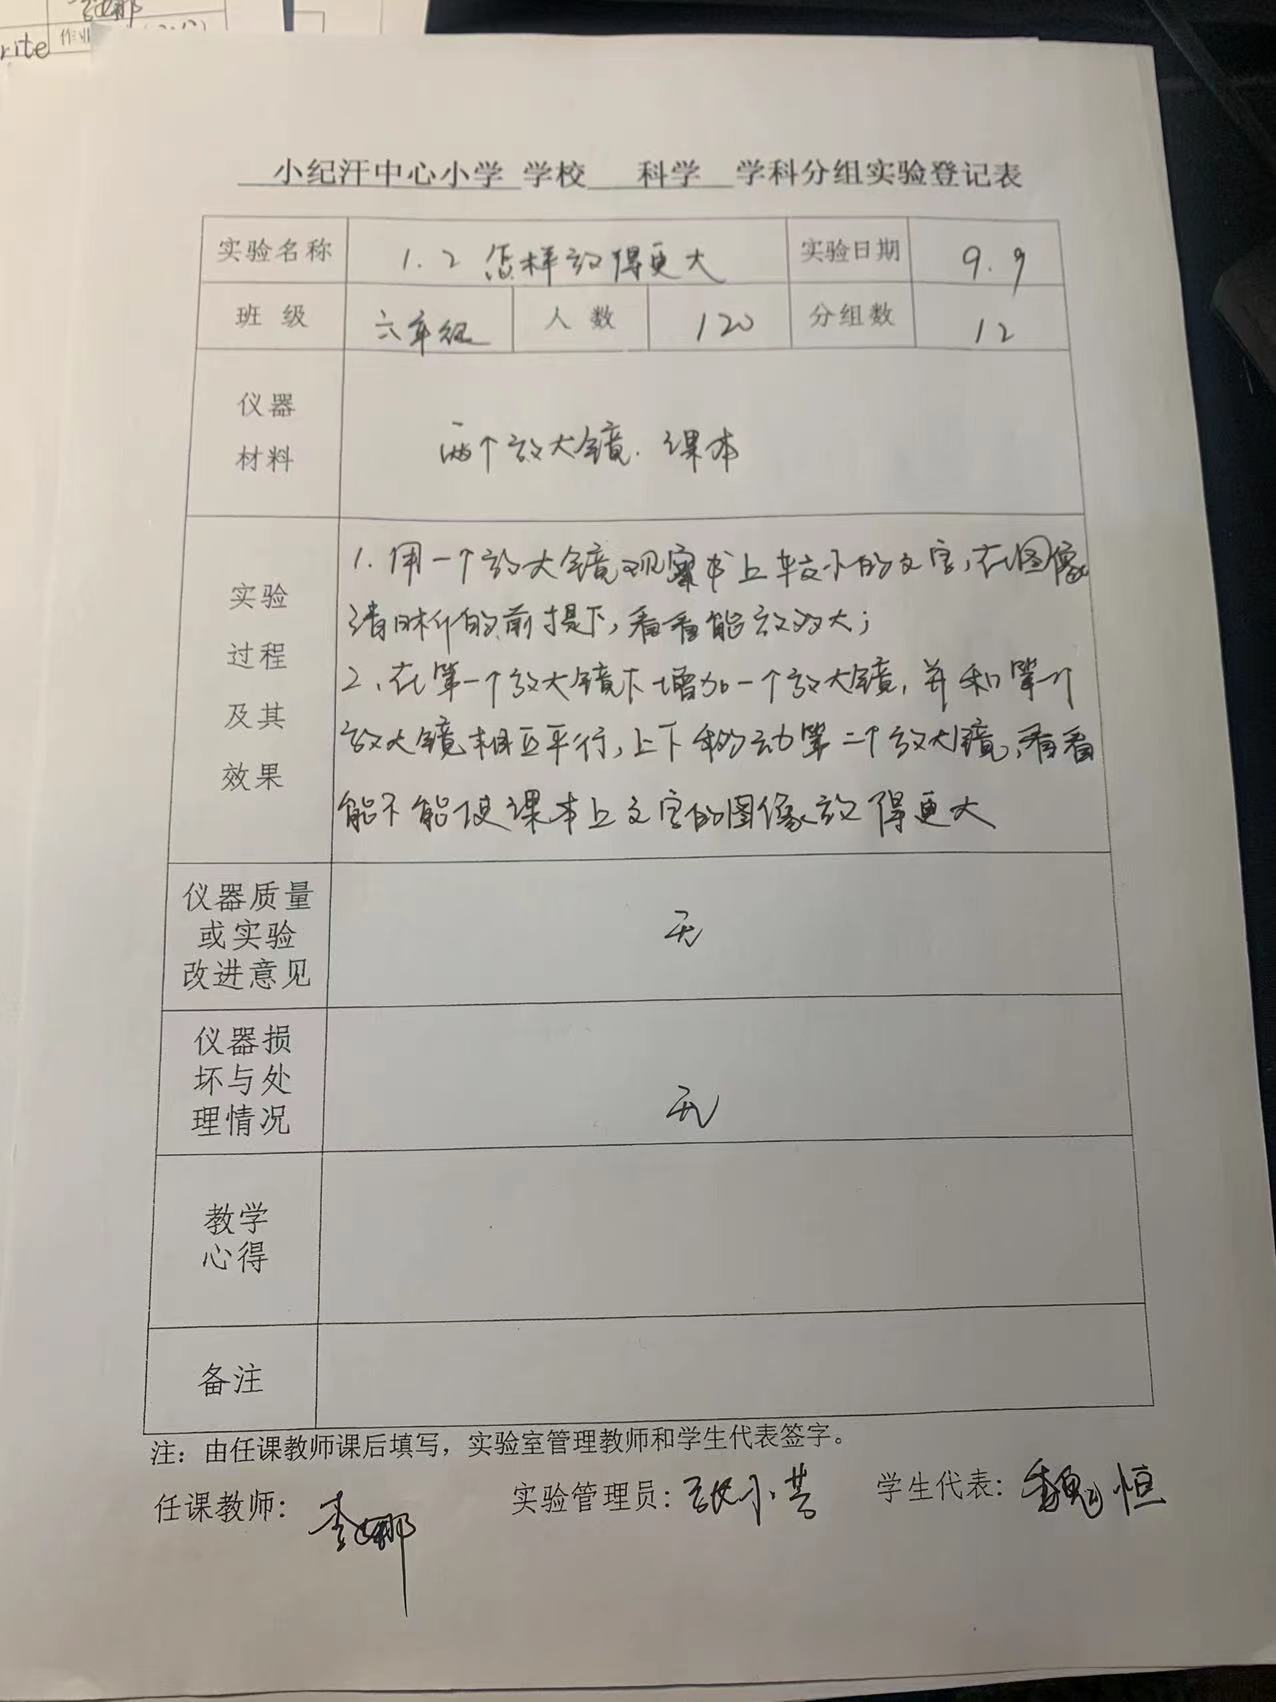 rite
作业
小纪汗中心小学 学校 科学 学科分组实验登记表
实验名称 1.2 怎样放得更大 实验日期 9.9
班 级 六年级 人 数 120 分组数 12
仪器
材料
两个放大镜. 课本
实验
过程
及其
效果
1. 用一个放大镜观察书上较小的文字,在图像
清晰的前提下,看看能放多大;
2、在第一个放大镜下增加一个放大镜,并和第一个
放大镜相互平行,上下移动第二个放大镜,看看
能不能使课本上文字的图像放得更大
仪器质量
或实验
改进意见
无
仪器损
坏与处
理情况
无
教学
心得
备注
注：由任课教师课后填写，实验室管理教师和学生代表签字。
任课教师: 李娜 实验管理员: 张小芸 学生代表: 魏恒